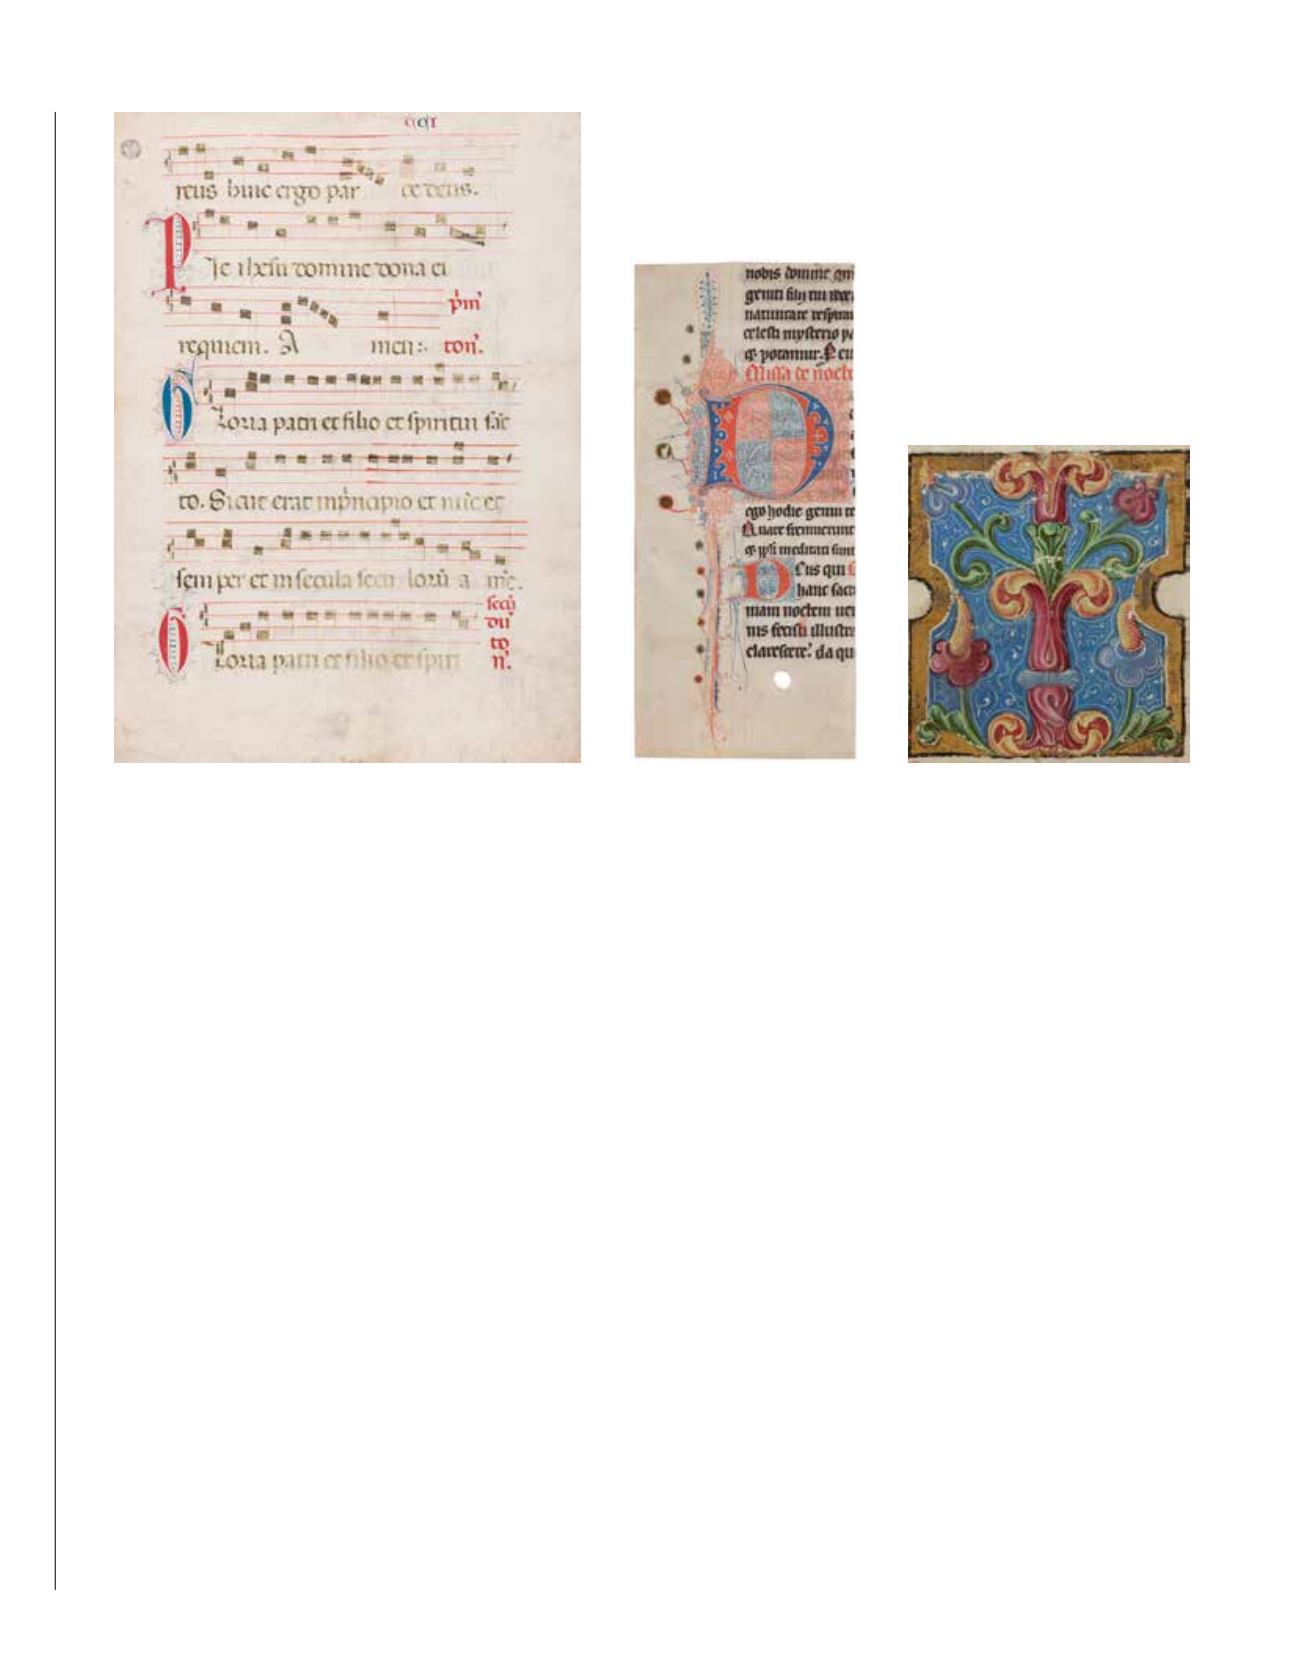 CCI
reus huic ergo par ce deus.
Pie ihesu domine dona ei
p̄m̄
requiem. A men: ton̄.
Gloria patri et filio et spiritui sāc
to. Sicut erat in p̄ncipio et nūc et
sem per et in secula secu lorū a mē.
secū
du
Gloria patri et filio et spiri to
n̄.
nobis domine
geniti filij tui
natiuitate
celesti mysterio
potamur. eu
Missa de nocte
D
ego hodie genui te
Quare fremuerunt
meditati sunt
Deus qui
hanc sacra
mam noctem
nis fecisti illustra
clarescere: da qu
I